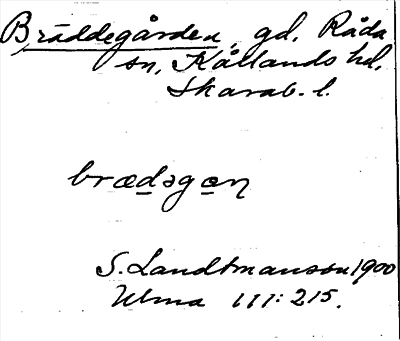 Bräddegården gd, Råda
sn, Kållands hd,
Skarab. l.
brædəgɑn
S. Landtmanson 1900
Ulma 111: 215.